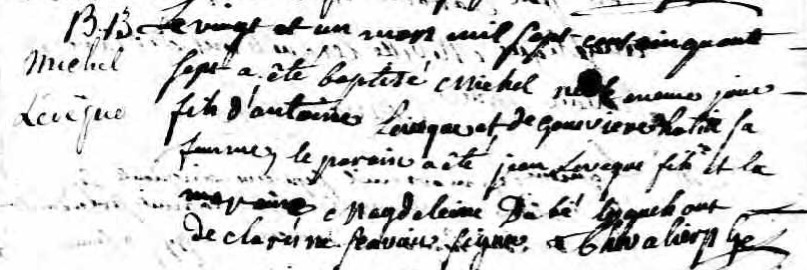 B.B. Le vingt et un mars mil sept cent cinquant
Michel
Levêque
sept a été baptisé Michel né le meme jour
fils d'antoine Leveque et de Genevieve sa
femme, le parain a été jean Leveque fils et la
maraine Magdeleine Dubé lesquels ont
declaré ne scavoir signer. Chevalier ptre